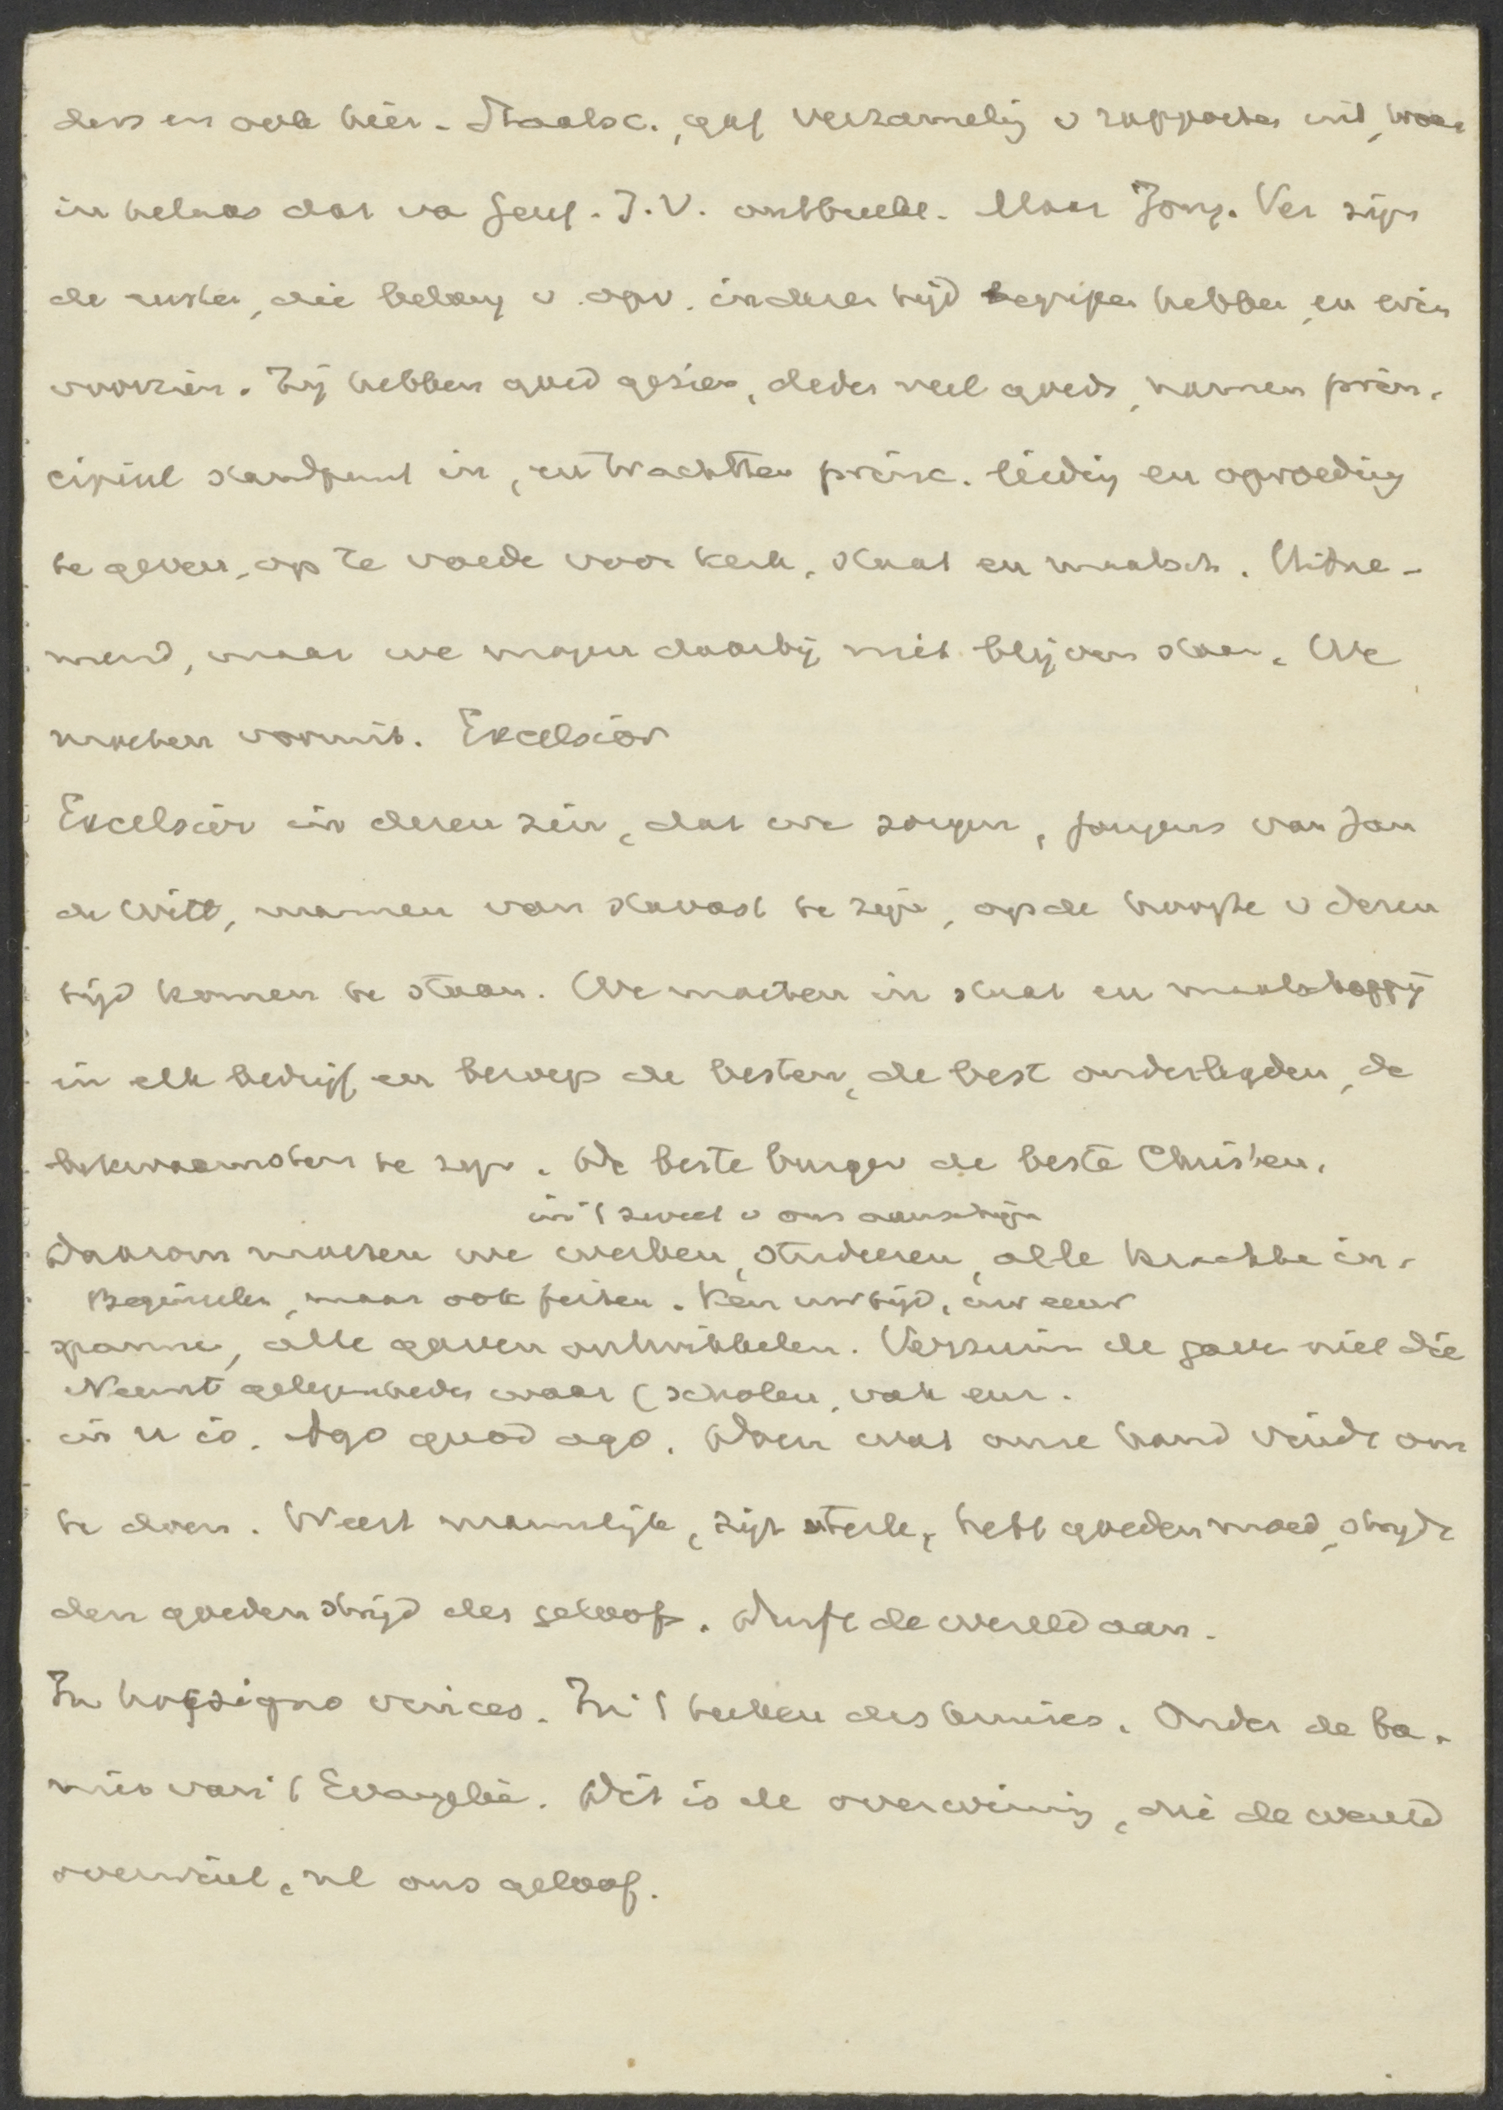 ders en ook hier. Staatsc., gaf verzameling v rapporten uit, waar
in helaas dat va Geref. J.V. ontbreekt. Maar Jong. Ver zijn
de eersten, die belang v. opv. in dezen tijd begrepen hebben, en erin
voorzien. Zij hebben goed gezien, deden veel goeds, namen prin-
cipieel standpunt in, en trachtten princ. leiding en opvoeding
te geven, op te voede voor kerk, staat en maatsch. Uitne-
mend, maar we mogen daarbij niet blijven staan. We
moeten vooruit. Excelsior
Excelsior in dezen zin, dat we zorgen, jongens van Jan
de Witt, mannen van stavast te zijn, op de hoogte v dezen
tijd komen te staan. We moeten in staat en maatschappij
in elk bedrijf en beroep de besten, de best onderlegden, de
bekwaamsten te zijn. De beste burger de beste Christen.
in 't zweet v ons aanschijn
Daarom moeten we werken, studeeren, alle krachte in-
Beginselen, maar ook feiten. Ken uw tijd, uw eeuw
spanne, alle gaven ontwikkelen. Verzuim de gave niet die
Neemt gelegenheden waar (scholen, vak enz.
in u is. Ago quod ago. Doen wat onze hand vindt om
te doen. Weest mannelijk, zijt sterk, hebt goeden moed, strijdt
den goeden strijd des geloofs. Durft de wereld aan.
In hoc signo vinces. In 't teeken des kruises. Onder de ba-
nier van 't Evangelie. Dit is de overwinning, die de wereld
overwint, nl ons geloof.